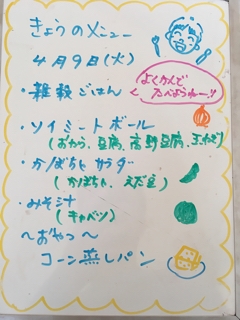 きょうのメニュー
4月9日(火)
・雑穀ごはん
よくかんで
たべようね〜!!
・ソイミートボール
(おから、豆腐、高野豆腐、玉ねぎ)
・かぼちゃサラダ
(かぼちゃ、えだ豆)
・みそ汁
(キャベツ)
〜おやつ〜
コーン蒸しパン